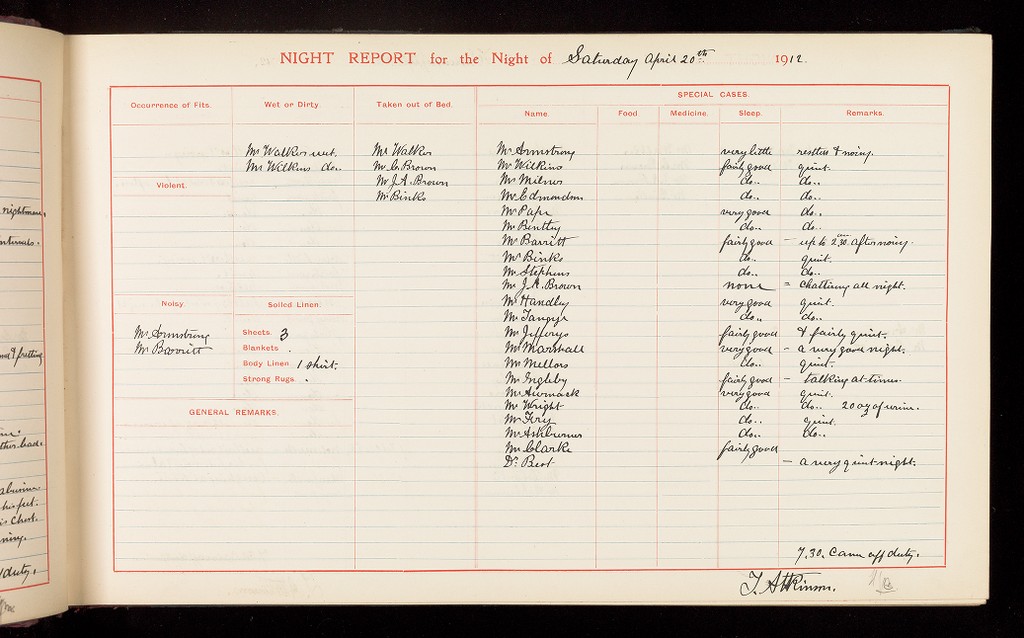 NIGHT REPORT for the Night of Saturday April 20th 1912.
SPECIAL CASES.
Occurrence of Fits. Wet or Dirty. Taken out of Bed. Name. Food Medicine. Sleep. Remarks.
Mr Walker wet. Mr Walker Mr Armstrong very little restless & noisy.
Mr Wilkins do.. Mr C. Brown Mr Wilkins fairly good quiet.
Violent. Mr J.A. Brown Mr Milner do.. do..
Mr Binks Mr Edmondson do.. do..
Mr Pape very good do..
Mr Bentley do.. do..
Mr Barritt fairly good – up to 2.30. after noisy.
Mr Binks do.. quiet.
Mr Stephens do.. do..
Mr J.A. Brown none = chattering all night.
Noisy. Soiled Linen. Mr Handley very good quiet.
Mr Tangye do.. do..
Mr Armstrong Sheets 3 Mr Jefferys fairly good & fairly quiet.
Mr Barritt Blankets . Mr Marshall very good – a very good night.
Body Linen 1 shirt. Mr Mellors do.. quiet.
Strong Rugs . Mr Ingleby fairly good – talking at times.
Mr very good quiet.
GENERAL REMARKS. Mr Wright do.. do.. 20 oz of urine.
Mr Fry do.. quiet.
Mr Ashburner do.. do..
Mr Clarke fairly good
Dr Best – a very quiet night.
7.30. Came off duty.
T. Atkinson.
nightmare,
intervals.
and fretting
other lead.
his feet.
is chest.
duty.